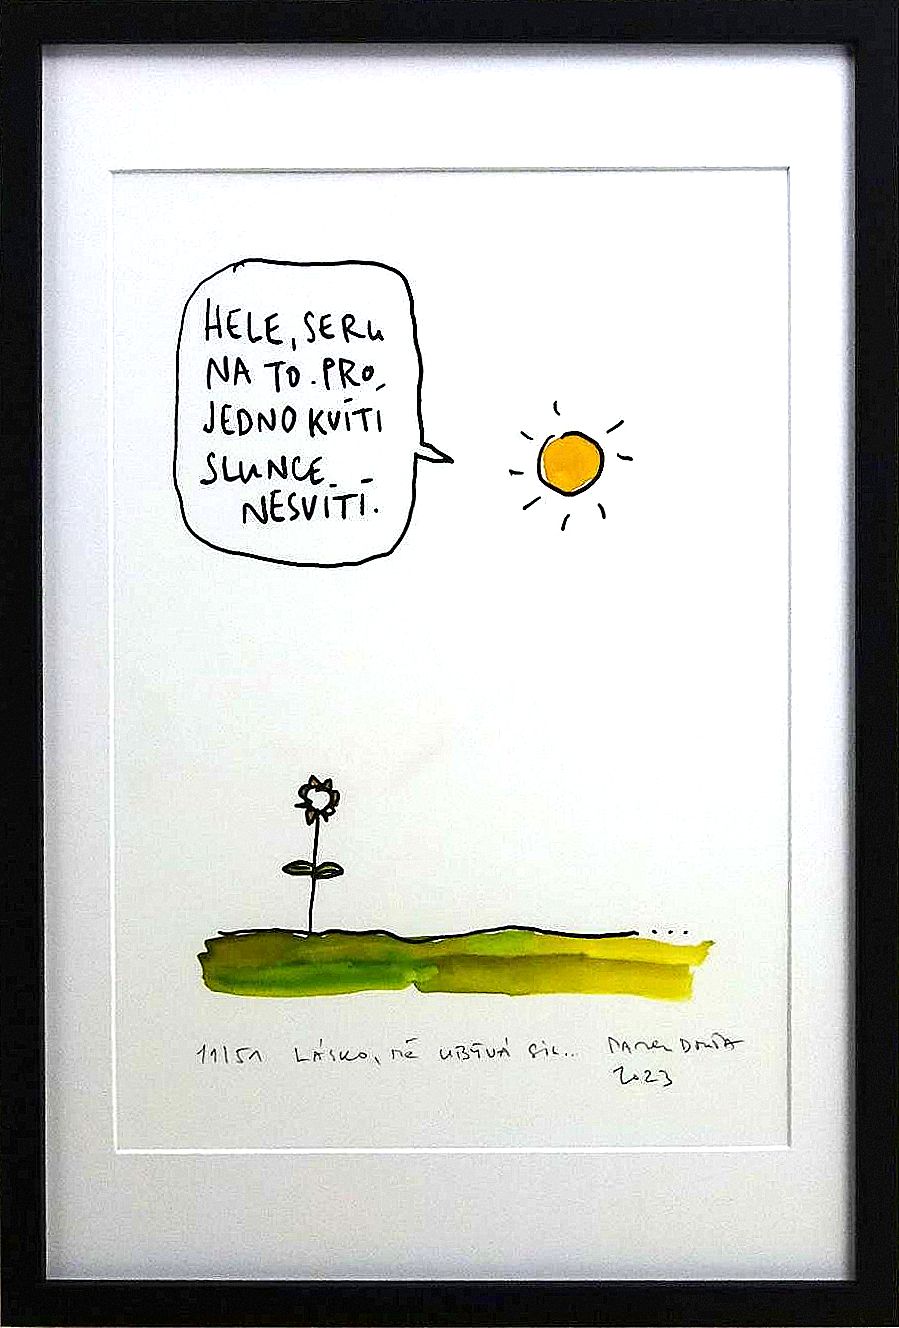 HELE, SERU
NA TO. PRO
JEDNO KVÍTÍ
SLUNCE
NESVÍTÍ.
11/51 LÁSKO, MĚ UBÝVÁ SIL..
2023